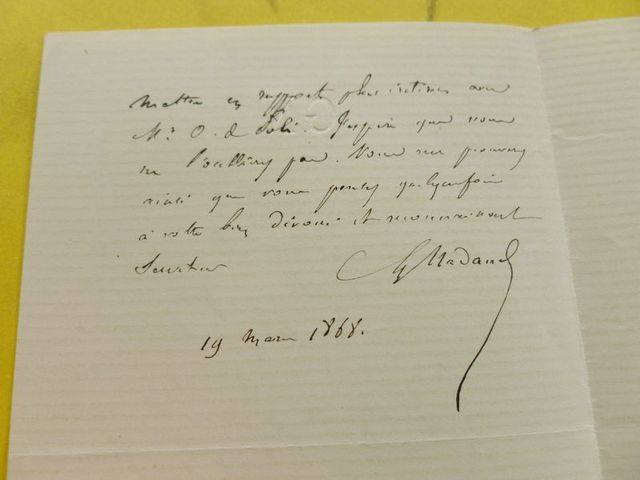 mettre en rapports plus intimes avec
Mr O. de Poli. J'espère que vous
ne l'oubliez pas. Vous me prouverez
ainsi que vous pensez quelquefois
à votre bien dévoué et reconnaissant
Serviteur
Nadaud
19 mars 1868.